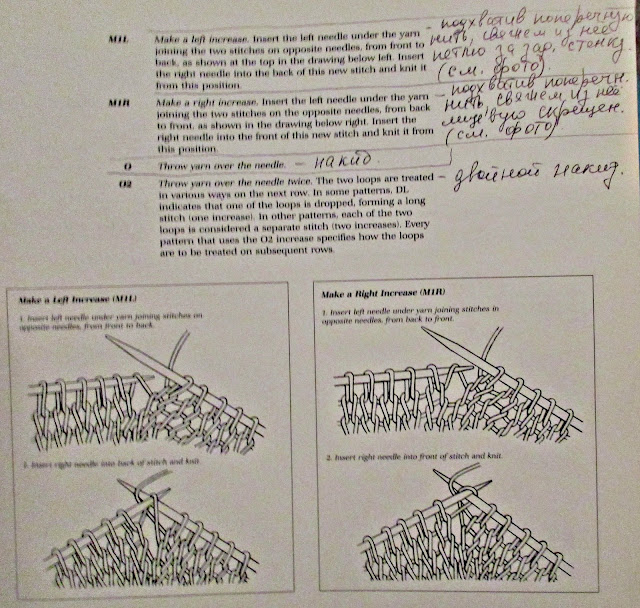 M1L Make a left increase. Insert the left needle under the yarn
joining the two stitches on opposite needles, from front to
back, as shown at the top in the drawing below left. Insert
the right needle into the back of this new stitch and knit it
from this position.
- подхватив поперечную
нить, свяжем из неё
петлю за зад. стенку.
(см. фото).
M1R Make a right increase. Insert the left needle under the yarn
joining the two stitches on the opposite needles, from back
to front, as shown in the drawing below right. Insert the
right needle into the front of this new stitch and knit it from
this position.
- подхватив поперечн.
нить, свяжем из неё
лицевую скрещен.
(см. фото).
O Throw yarn over the needle. - накид.
O2 Throw yarn over the needle twice. The two loops are treated
in various ways on the next row. In some patterns, DL
indicates that one of the loops is dropped, forming a long
stitch (one increase). In other patterns, each of the two
loops is considered a separate stitch (two increases). Every
pattern that uses the O2 increase specifies how the loops
are to be treated on subsequent rows.
- двойной накид.
Make a Left Increase (M1L)
1. Insert left needle under yarn joining stitches on
opposite needles, from front to back.
2. Insert right needle into back of stitch and knit.
Make a Right Increase (M1R)
1. Insert left needle under yarn joining stitches in
opposite needles, from back to front.
2. Insert right needle into front of stitch and knit.